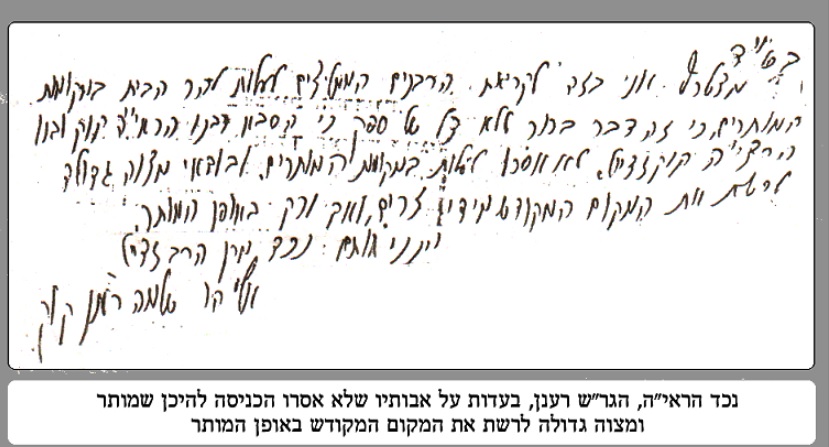 בסי״ד
מצטרף אני בזה לקריאת הרבנים הממליצים לעלות להר הבית במקומות
המותרים, כי זה דבר ברור שלא צל של ספק כי הסבא רבנו הראי״ה קוק ובנו
הרצי״ה קוק זצ״ל לא אסרו לעלות במקומות המותרים, ובודאי מצוה גדולה
לרשת את המקום המקודש מידי זרים, ואך ורק באופן המותר.
הינני חותם נכד מרן הרב זצ״ל
שלמה רענן קוק
נכד הראי״ה, הגר״ש רענן, בעדות על אבותיו שלא אסרו הכניסה להיכן שמותר
ומצוה גדולה לרשת את המקום המקודש באופן המותר